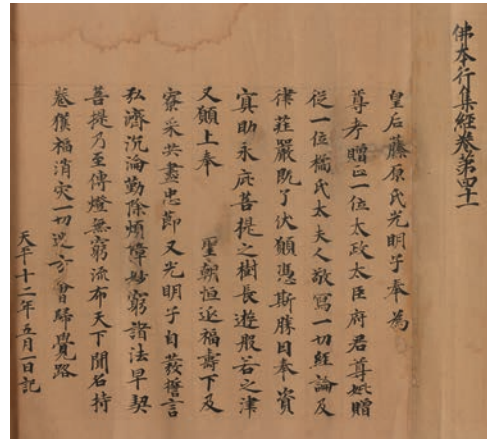 佛本行集經卷第四十一
皇后藤原氏光明子奉為
尊考贈正一位太政太臣府君尊妣贈
従一位橘氏太夫人敬寫一切經論及
律莊嚴既了伏願憑斯勝因奉資
冥助永庇菩提之樹長遊般若之津
又願上奉　聖朝恒延福壽下及
寮采共盡忠節又光明子自發誓言
弘濟沉淪勤除煩障妙窮諸法早契
菩提乃至傳燈無窮流布天下聞名持
卷獲福消灾一切迷方會歸覺路
天平十二年五月一日記